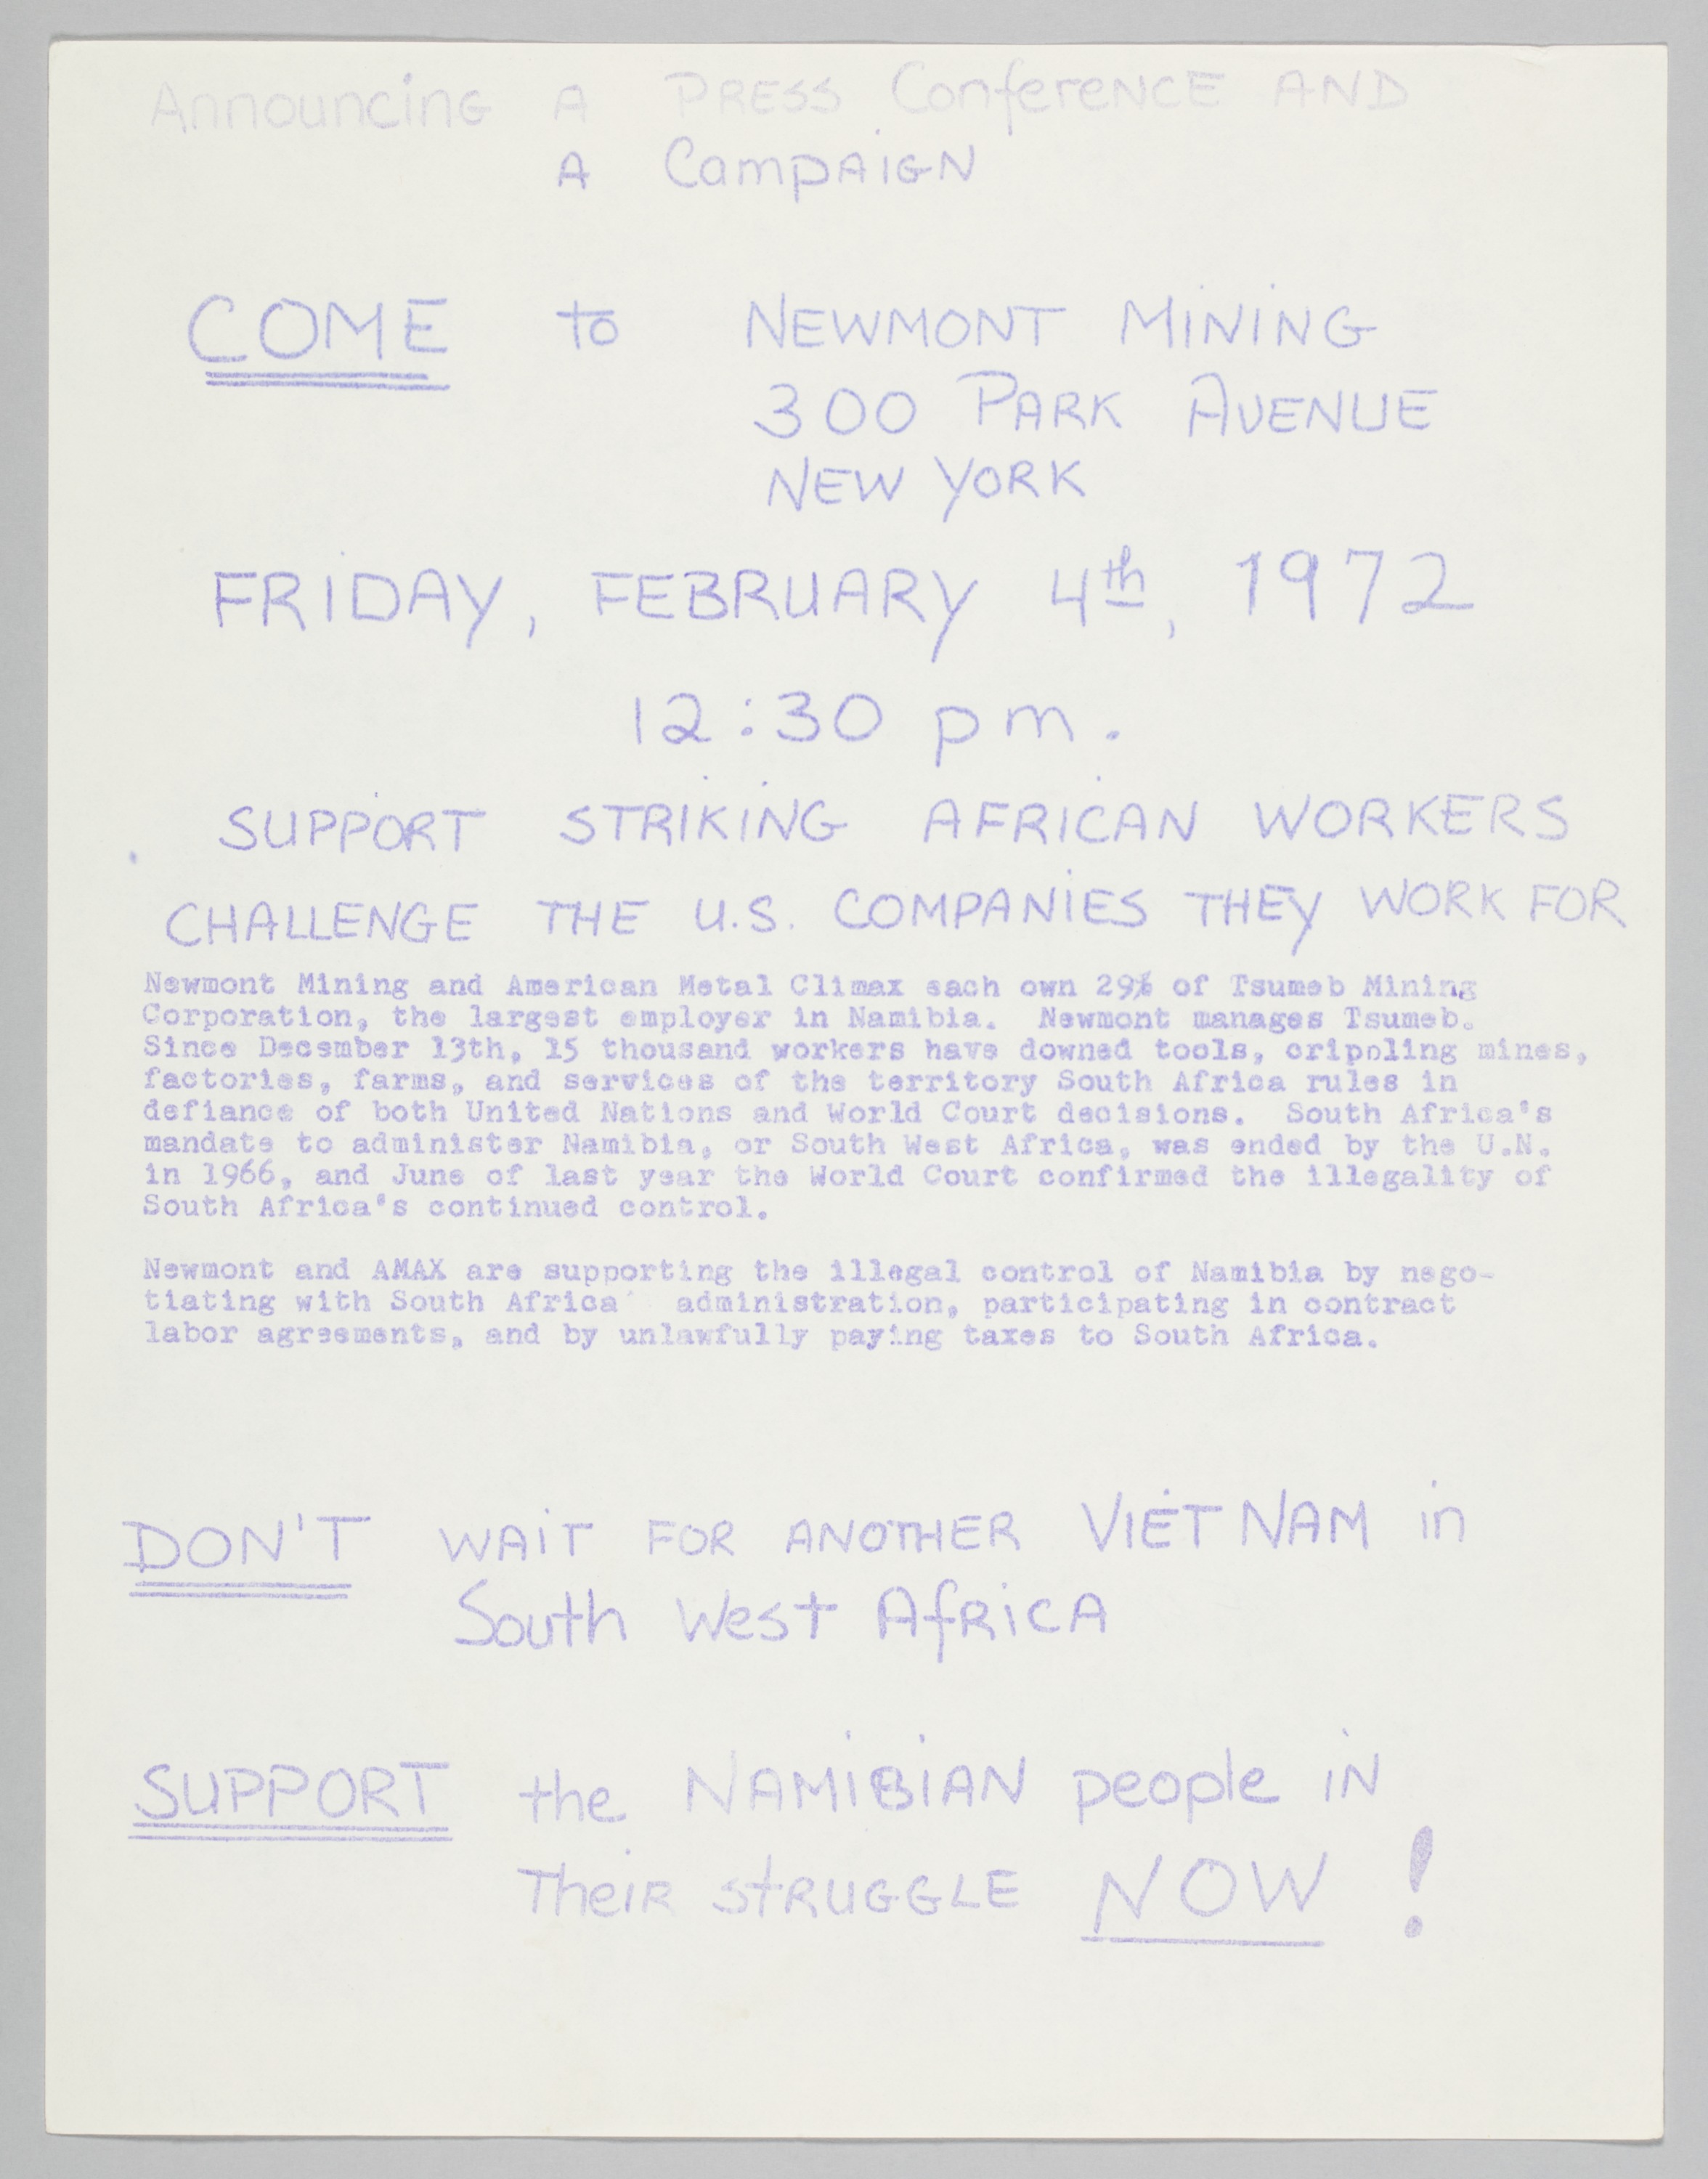 Announcing A PRESS Conference AND
A Campaign
COME to NEWMONT MINING
300 PARK AVENUE
NEW YORK
FRIDAY, FEBRUARY 4th, 1972
12:30 pm.
SUPPORT STRIKING AFRICAN WORKERS
CHALLENGE THE U.S. COMPANIES THEY WORK FOR
Newmont Mining and American Metal Climax each own 29% of Tsumeb Mining
Corporation, the largest employer in Namibia. Newmont manages Tsumeb.
Since December 13th, 15 thousand workers have downed tools, crippling mines,
factories, farms, and services of the territory South Africa rules in
defiance of both United Nations and World Court decisions. South Africa's
mandate to administer Namibia, or South West Africa, was ended by the U.N.
in 1966, and June of last year the World Court confirmed the illegality of
South Africa's continued control.
Newmont and AMAX are supporting the illegal control of Namibia by nego-
tiating with South Africa' administration, participating in contract
labor agreements, and by unlawfully paying taxes to South Africa.
DON'T WAIT FOR ANOTHER VIET NAM in
South West Africa
SUPPORT the NAMIBIAN people IN
Their STRUGGLE NOW!